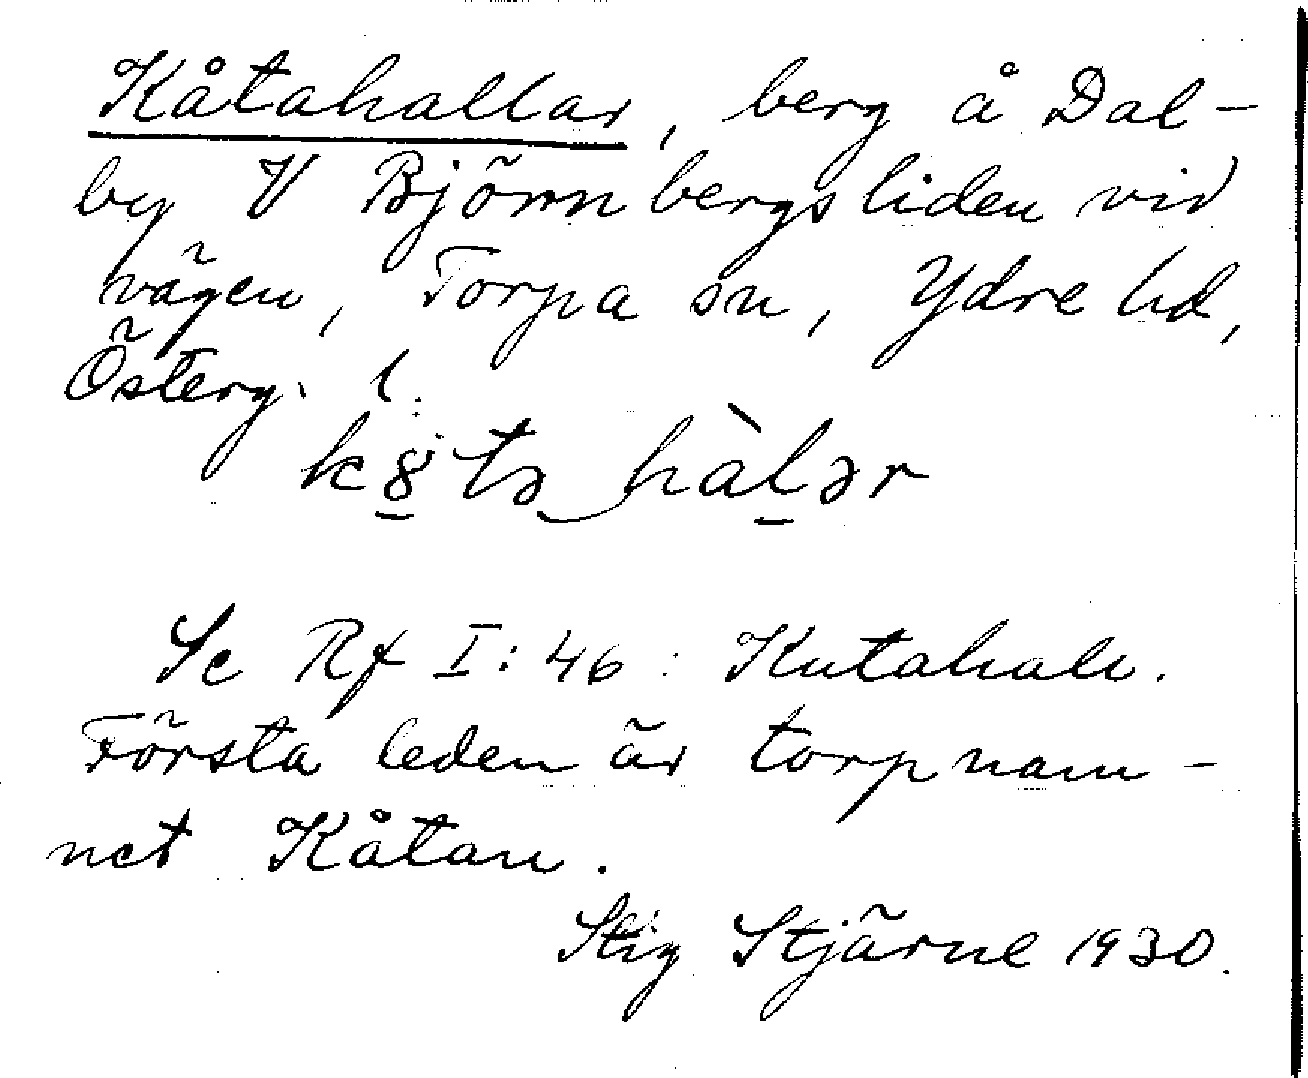 Kåtahallar, berg å Dal-
by V Björnbergsliden vid
vägen, Torpa sn, Ydre hd,
Österg. l.
k8̱tə hàḻər
Se Rf I:46: Kutahale.
Första leden är torpnam-
net Kåtan.
Stig Stjärne 1930.